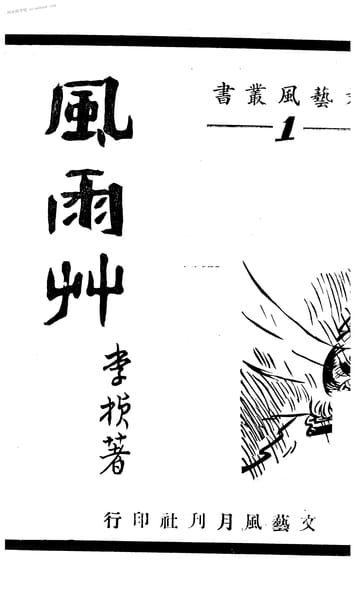 文藝風叢書
1
風雨艸
李楨著
文藝風月刊社印行